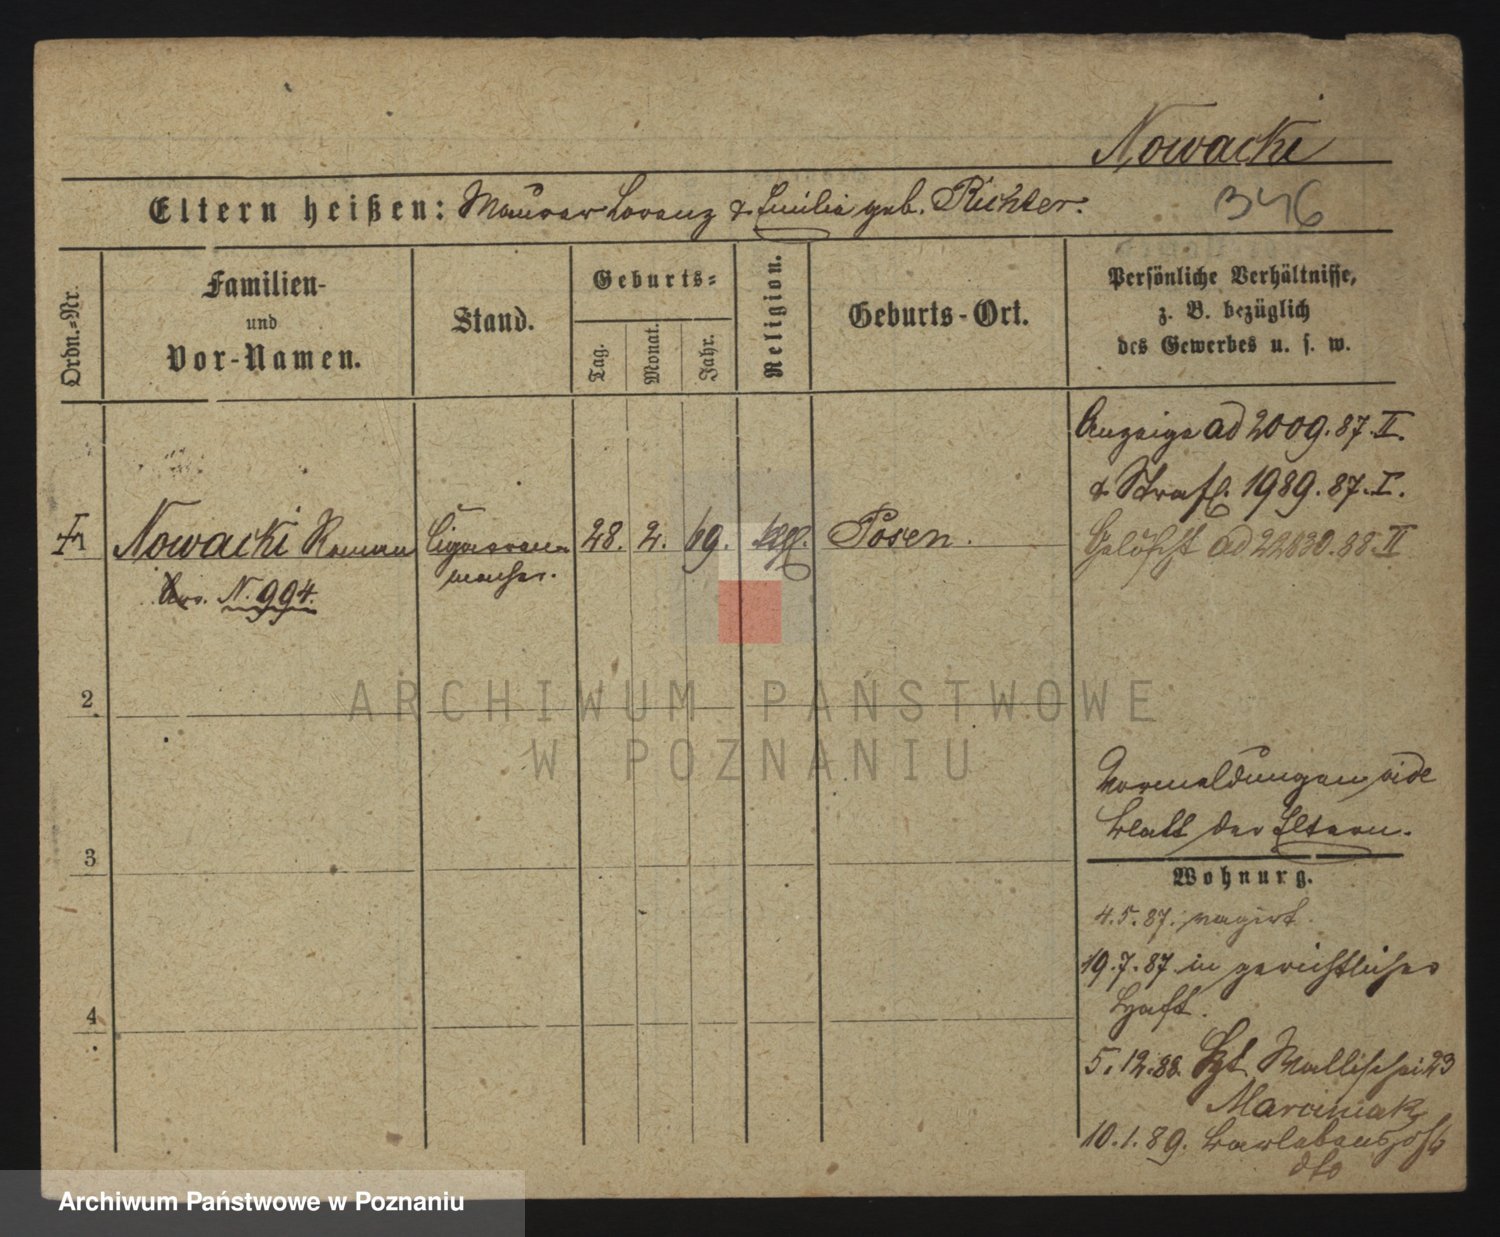 Nowacki
Eltern heißen: Maurer Lorenz & Emilie geb. Richter.
346
Ordn.=Nr.
Familien-
und
Vor-Namen.
Stand.
Geburts=
Tag.
Monat.
Jahr.
Religion.
Geburts-Ort.
Persönliche Verhältnisse,
z. B. bezüglich
des Gewerbes u. s. w.
Anzeige ad 2009.87.II.
& Straf. 1989.87.I.
1 Nowacki Roman Cigarren 28. 2. 69. kath. Posen.
macher.
Gelöscht ad 22830.88.II
N. 994.
2
3
4
Vormeldungen vide
Blatt der Eltern.
Wohnung.
4.5.87. vagirt.
19.7.87 in gerichtlicher
Haft.
5.12.88. Wallischei 23
Marciniak
10.1.89.
dto
ARCHIWUM PAŃSTWOWE
W POZNANIU
Archiwum Państwowe w Poznaniu